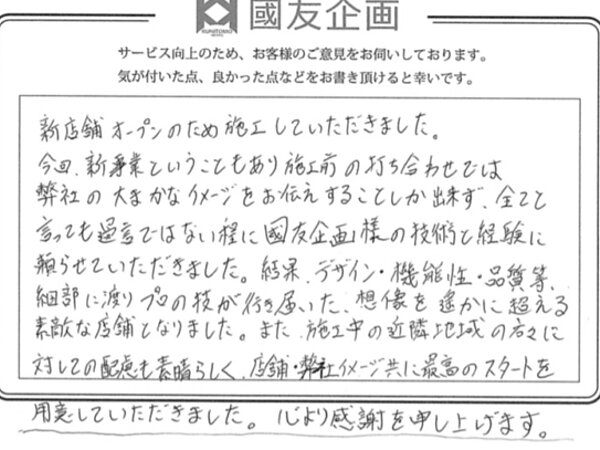 國友企画
サービス向上のため、お客様のご意見をお伺いしております。
気が付いた点、良かった点などをお書き頂けると幸いです。
新店舗オープンのため施工していただきました。
今回、新事業ということもあり施工前の打ち合わせでは
弊社の大まかなイメージをお伝えすることしか出来ず、全てと
言っても過言ではない程に國友企画様の技術と経験に
頼らせていただきました。結果、デザイン・機能性・品質等、
細部に渡りプロの技が行き届いた、想像を遥かに超える
素敵な店舗となりました。また、施工中の近隣地域の方々に
対しての配慮も素晴らしく、店舗・弊社イメージ共に最高のスタートを
用意していただきました。心より感謝を申し上げます。